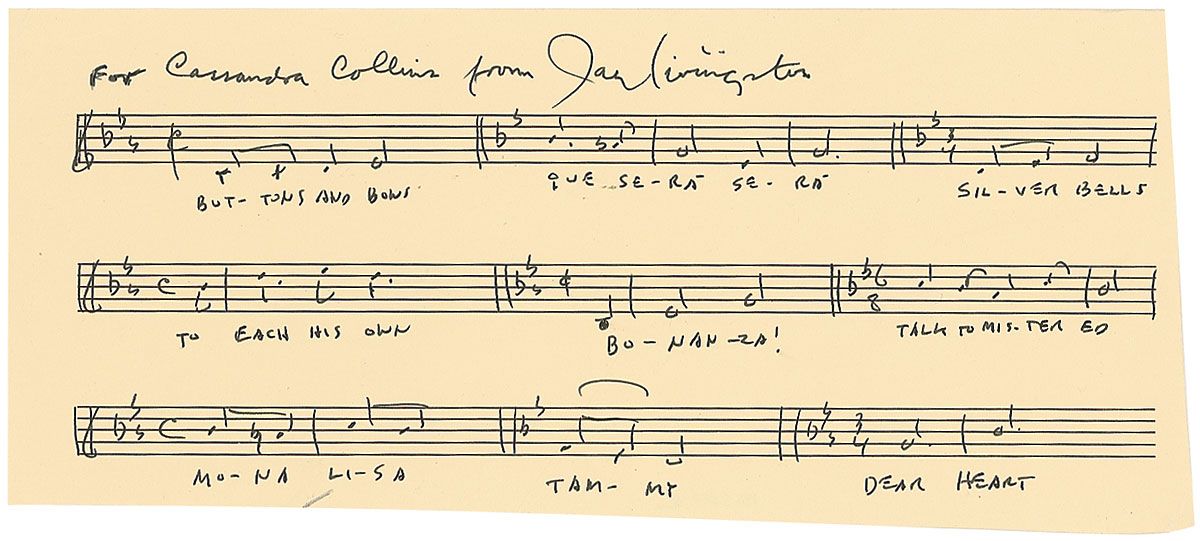 For Cassandra Collins from Jay Livingston
BUT-TONS AND BOWS QUE SE-RÁ SE-RÁ SIL-VER BELLS
TO EACH HIS OWN BO-NAN-ZA! TALK TO MIS-TER ED
MO-NA LI-SA TAM-MY DEAR HEART